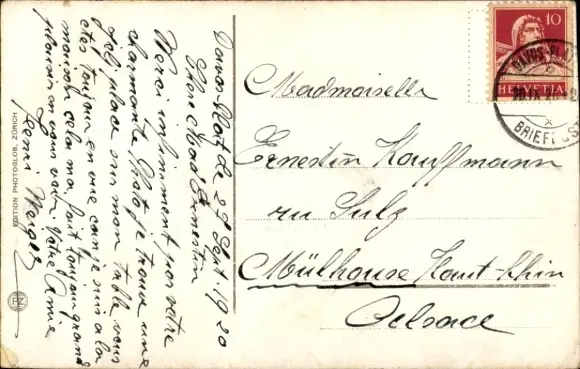 Davos Platz le 27 Sept. 1920
Chère Mad Ernestin
Merci infiniment pour votre
charmante Photo je trouve une
joli place sur mon table vous
etes toujour en vue car je suis a la
maison cela me fait toujour grand
plaisir en vous voir. Votre Amie
Henri
EDITION PHOTOGLOB, ZÜRICH
PZ
10
HELVETIA
DAVOS-PLATZ
BRIEFPOST
Mademoiselle
Ernestin Kauffmann
ru Sulz
Mülhouse Haut-Rhin
Aelsace